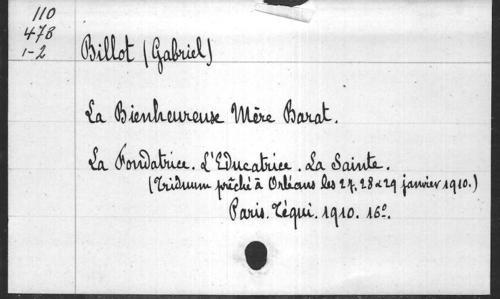 110
478
1-2
Billot (Gabriel)
La Bienheureuse Mère Barat.
La Fondatrice. L'Educatrice. La Sainte.
(Triduum prêché à Orléans les 27, 28 & 29 janvier 1910.)
Paris. Téqui. 1910. 16º.